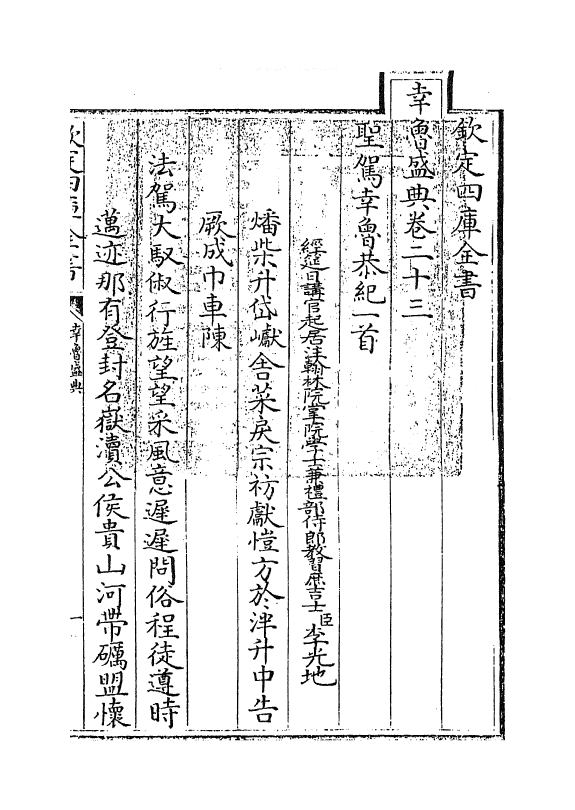 欽定四庫全書
幸魯盛典卷二十三
聖駕幸魯恭紀一首
經筵日講官起居注翰林院掌院學士兼禮部侍郎教習庶吉士臣李光地
燔柴升岱巘舍菜戾宗祊獻愷方於泮升中告
厥成巾車陳
法駕大馭俶行旌望望采風意遲遲問俗程徒遵時
邁迹那有登封名嶽瀆公侯貴山河帶礪盟懷
欽定四庫全書
幸魯盛典
一